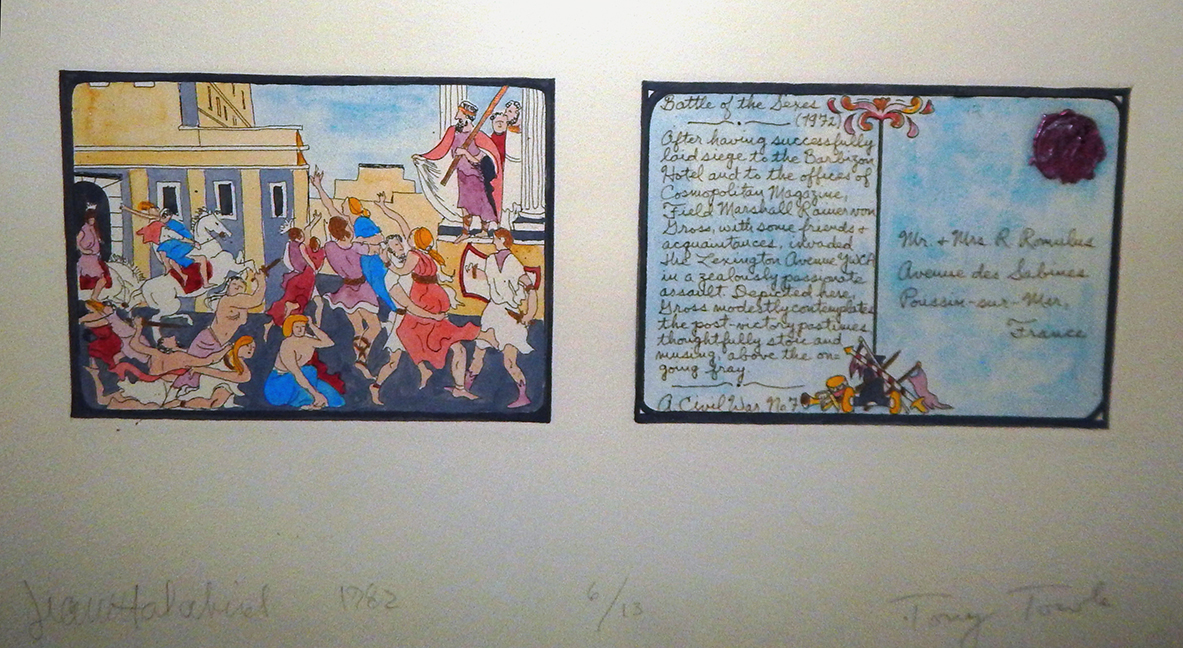 Battle of the Sexes
(1972)
After having successfully
laid siege to the Barbizon
Hotel and to the offices of
Cosmopolitan Magazine,
Field Marshall Rainer von
Gross, with some friends &
acquaintances, invaded
the Lexington Avenue YWCA
in a zealously passionate
assault. Depicted here,
Gross modestly contemplates
the post-victory pastimes
thoughtfully stoic and
musing, above the on=
going fray.
A Civil War No 7
Mr. & Mrs R. Romulus
Avenue des Sabines
Poussin-sur-Mer,
France
1982
6/13
Tony Towle